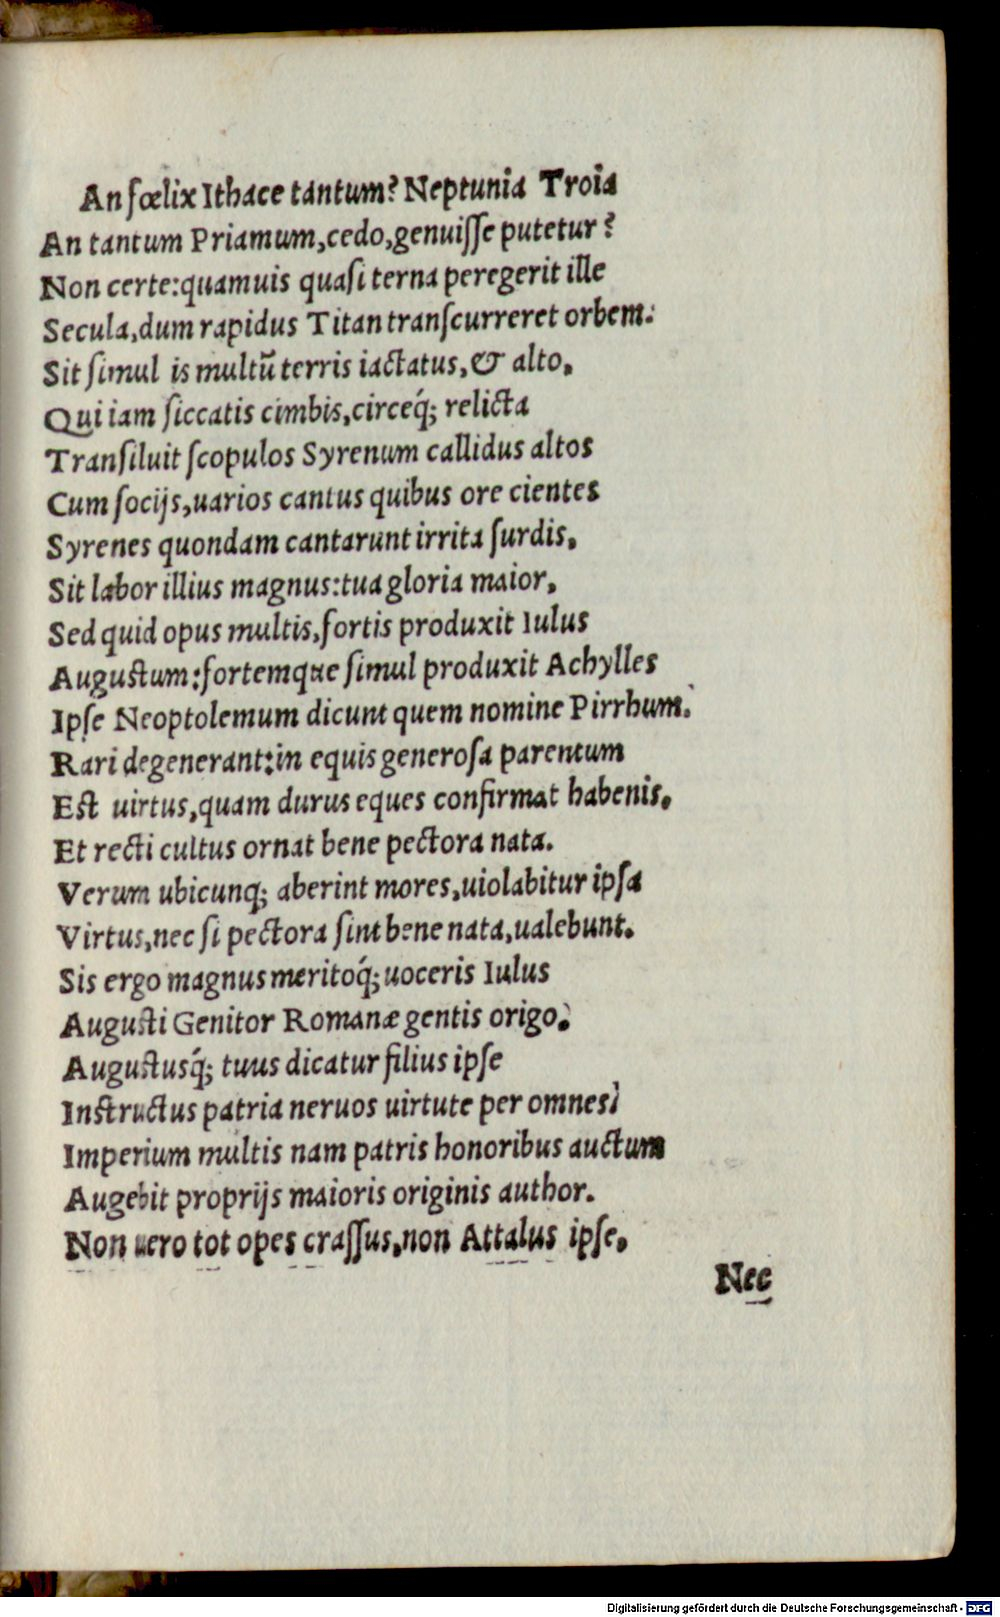 An fœlix Ithace tantum? Neptunia Troia
An tantum Priamum,cedo,genuiſſe putetur?
Non certe:quamuis quaſi terna peregerit ille
Secula,dum rapidus Titan tranſcurreret orbem.
Sit ſimul is multũ terris iactatus,& alto.
Qui iam ſiccatis cimbis,circeq́; relicta
Tranſiluit ſcopulos Syrenum callidus altos
Cum ſocijs,uarios cantus quibus ore cientes
Syrenes quondam cantarunt irrita ſurdis.
Sit labor illius magnus:tua gloria maior,
Sed quid opus multis,fortis produxit Iulus
Auguſtum:fortemque ſimul produxit Achylles
Ipſe Neoptolemum dicunt quem nomine Pirrhum.
Rari degenerant:in equis generoſa parentum
Eſt uirtus,quam durus eques confirmat habenis.
Et recti cultus ornat bene pectora nata.
Verum ubicunq; aberint mores,uiolabitur ipſa
Virtus,nec ſi pectora ſint bene nata,ualebunt.
Sis ergo magnus meritoq́;uoceris Iulus
Auguſti Genitor Romanæ gentis origo.
Auguſtusq́; tuus dicatur filius ipſe
Inſtructus patria neruos uirtute per omnes
Imperium multis nam patris honoribus auctum
Augebit proprijs maioris originis author.
Non uero tot opes craſſus,non Attalus ipſe.
Nec
Digitalisierung gefördert durch die Deutsche Forschungsgemeinschaft - DFG